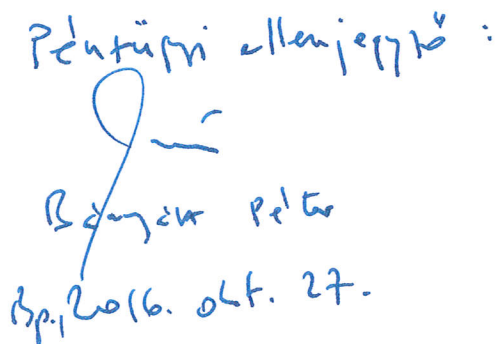 Pénzügyi ellenjegyző:
Péter
Bp., 2016. okt. 27.